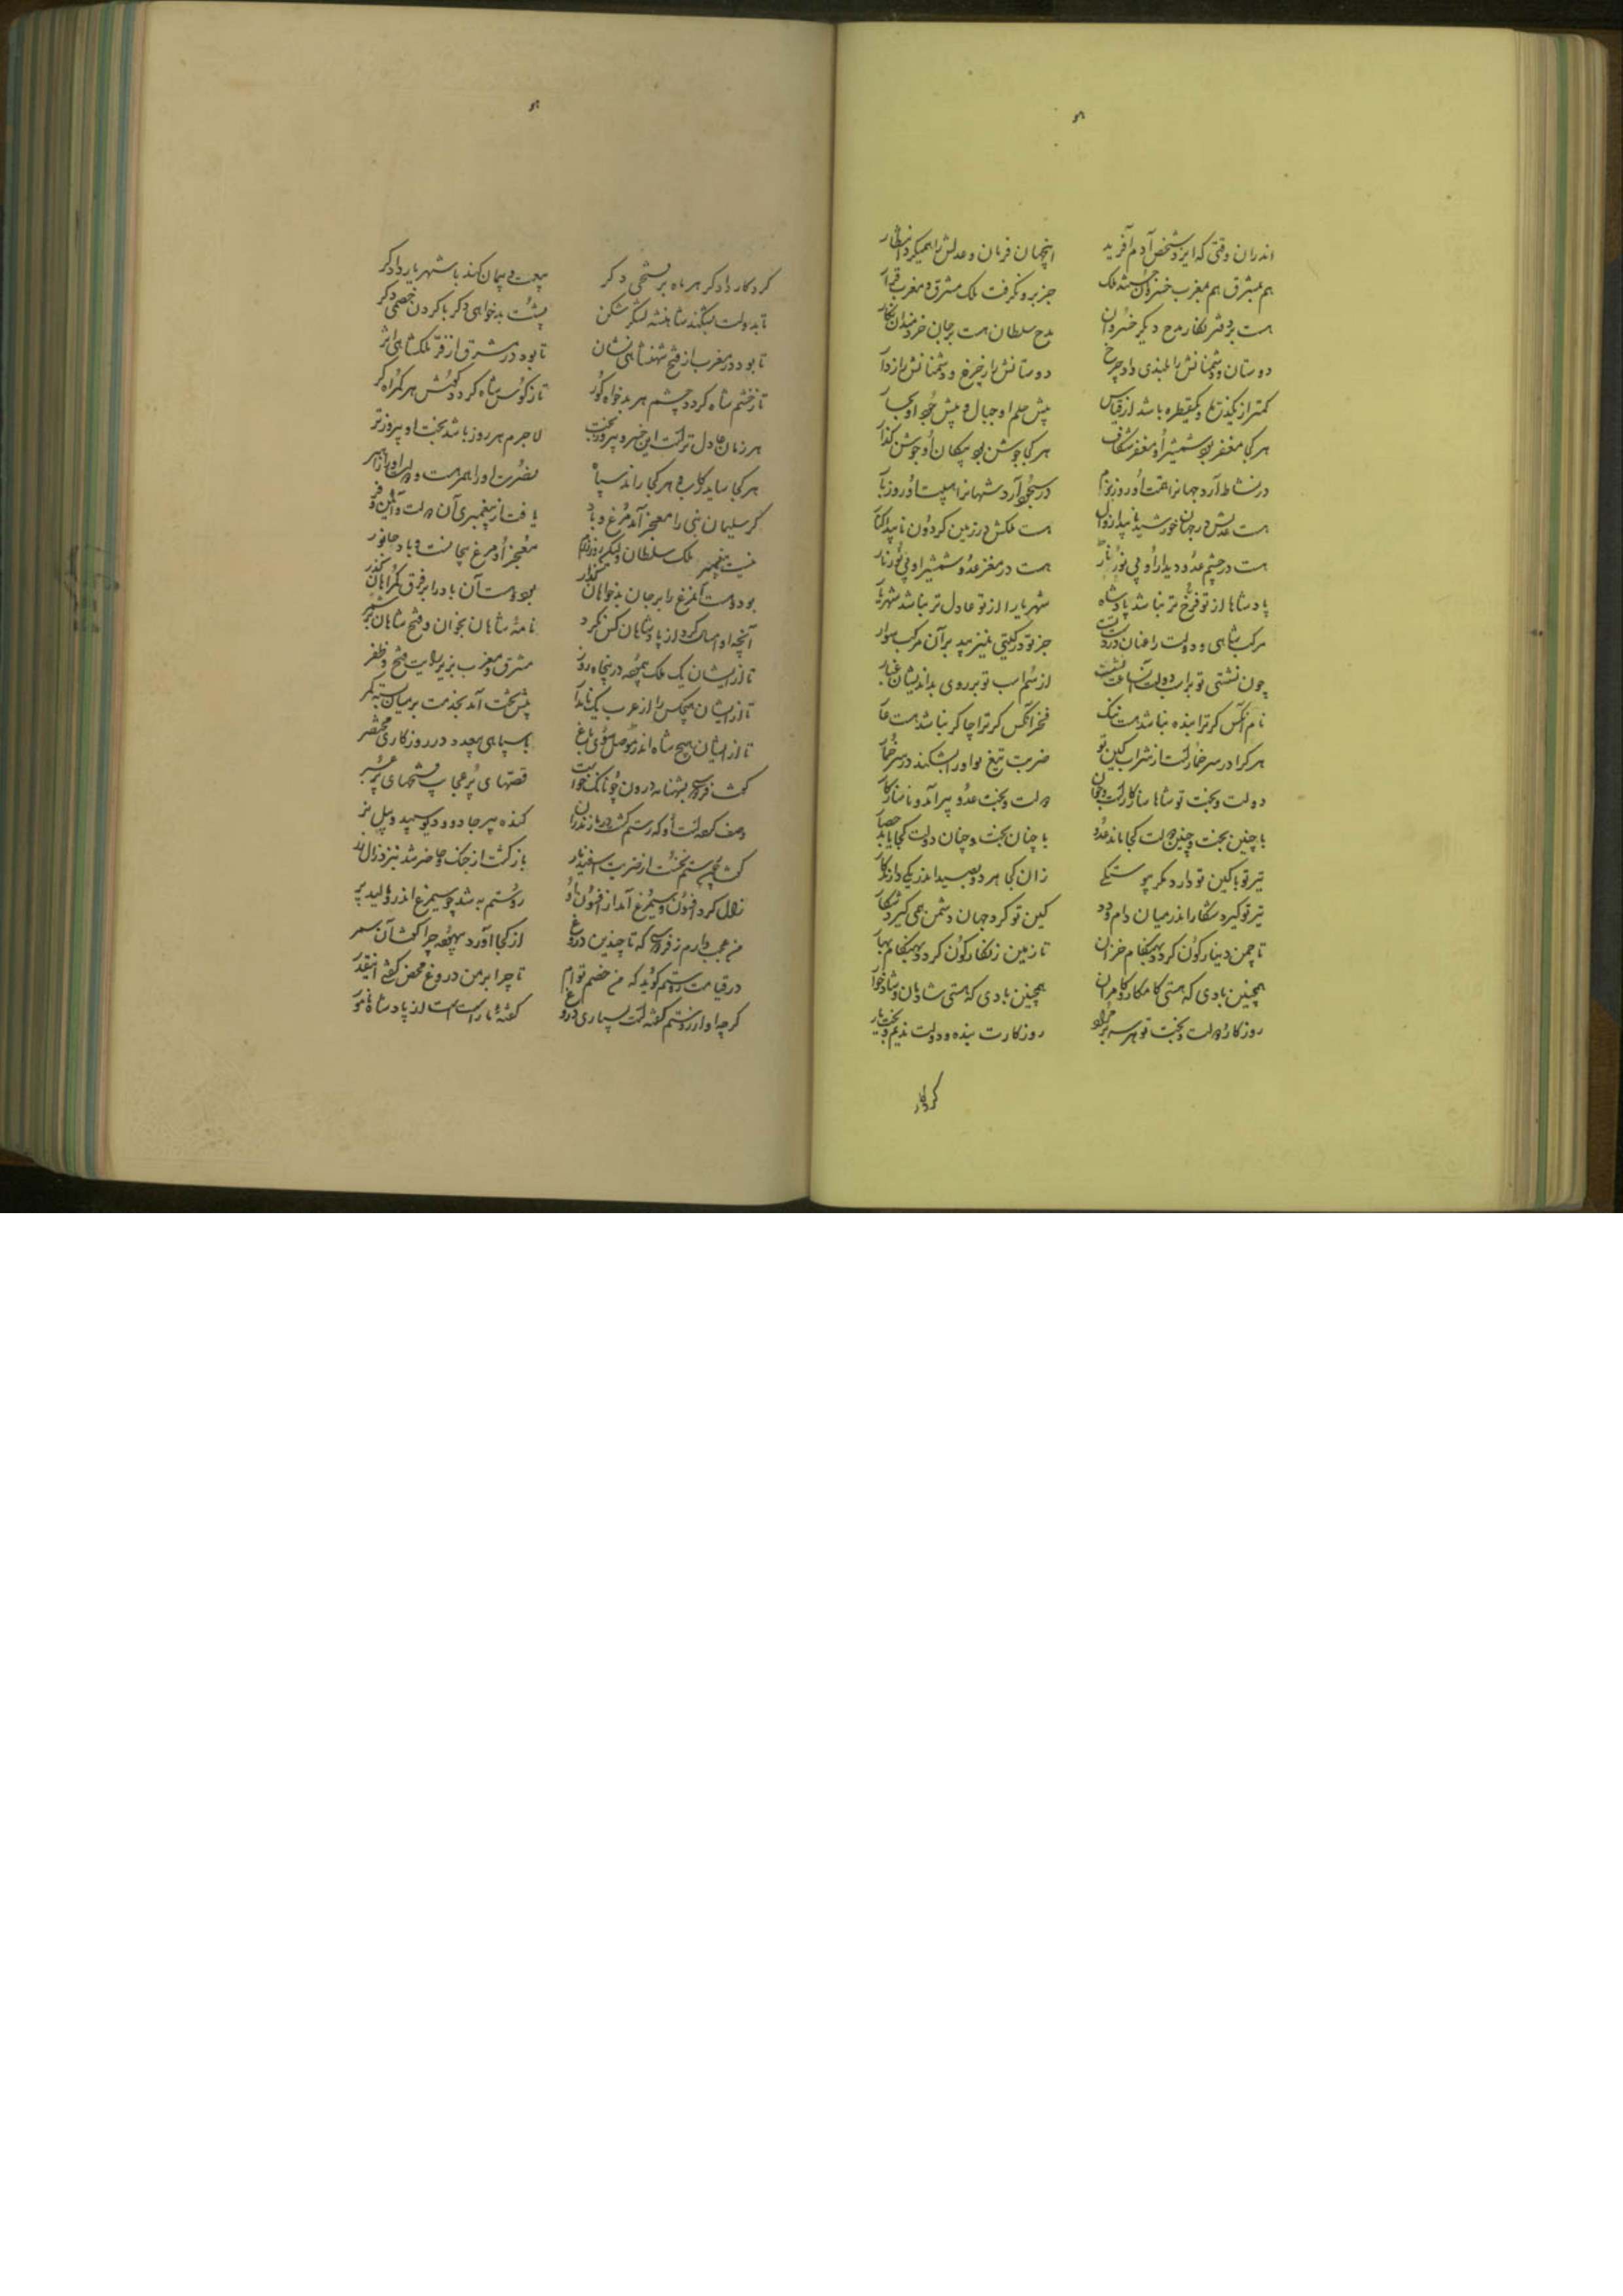 اندران وقتی که ایزد شخص آدم آفرید اینجهان فرمان و عدلش را همیکرد انتظار
هم بمشرق هم بمغرب خسروان هستند لیک جز بر و نگرفت ملک مشرق و مغرب قرار
هست بر دفتر نگار مدح دیگر خسروان مدح سلطان هست بر جان خردمندان نگار
دوستان و دشمنانش را بلندی داد چرخ دوستانش را ز چرخ و دشمنانش را ز دار
کمتر از یکذره و یکقطره باشد از قیاس پیش حلم او جبال و پیش جود او بحار
هر کجا مغفر بود شمشیر او مغفر شکاف هر کجا جوشن بود پیکان او جوشن گذار
در نشاط آرد جهانرا همت او روز بزم در سجود آرد شهانرا هیبت او روز بار
هست عدلش در جهان خورشید ناپیدا زوال هست ملکش در زمین گردون ناپیدا کنار
هست در چشم عدو دیدار او بی نور نار هست در مغز عدو شمشیر او بی نور نار
پادشاها از تو فرخ تر نباشد پادشاه شهریارا از تو عادل تر نباشد شهریار
مرکب شاهی و دولت را عنان در دست تست جز تو در گیتی نیزیبد بر آن مرکب سوار
چون نشستی تو بر اسب دولت آنساعت نشست از سم اسب تو بر روی بداندیشان غبار
نام آنکس کو ترا بنده نباشد هست ننگ فخر آنکس کو ترا چاکر نباشد هست عار
هر کرا در سر خمارست از شراب کین تو ضربت تیغ تو او را بشکند در سر خمار
دولت و بخت تو شاها سازگارست و جوان دولت و بخت عدو پیر آمد و ناسازگار
با چنین بخت و چنین دولت کجا ماند عدو با چنان بخت و چنان دولت کجا یابد حصار
تیر تو با کین تو دارد مگر پیوستگی زان کجا هر دو بصید اندر یکی دارند کار
تیر تو گیرد شکار اندر میان دام و دد کین تو گرد جهان دشمن همی گیرد شکار
تا چمن دینار گون گردد بهنگام خزان تا زمین زنگار گون گردد بهنگام بهار
همچنین بادی که هستی کامکار و کامران همچنین بادی که هستی شادمان و شادخوار
روزگار و دولت و بخت تو هر سه بر مراد روزگارت بنده و دولت ندیم و بخت یار
کردگار
کردگار دادگر هر ماه بر فتحی دگر بیعت و پیمان کند با شهریار دادگر
تا بدولت بشکند شاهنشه لشکر شکن پشت بدخواهی دگر با گردن خصمی دگر
تا بود در مغرب از فتح شهنشاهی نشان تا بود در مشرق از فر ملکشاهی اثر
تا ز خشم شاه گردد چشم هر بدخواه کور تا ز کوس شاه گردد گوش هر گمراه کر
هر زمان عادل ترست این خسرو پیروز بخت لاجرم هر روز باشد بخت او پیروزتر
هر کجا ساید رکاب و هر کجا راند سپاه نصرت او را همرهست و دولت او را راهبر
گر سلیمان نبی را معجز آمد مرغ و باد یافت از پیغمبری آن دولت و آئین و فر
نیست پیغمبر ملک سلطان ولیکن روز رزم معجز او مرغ بیجانست و باد جانور
بود دوست آنمرغ را بر جان بدخواهان گذار بود دوست آن باد را بر فرق گمراهان گذر
آنچه او امسال کرد از پادشاهان کس نکرد نامه شاهان بخوان و فتح شاهان بر شمر
تا از ایشان یک ملک همچو در پنجاه روز مشرق و مغرب بزیر رایت فتح و ظفر
تا از ایشان هیچکس را از عرب یک نامدار پیش تخت آمد بخدمت بر میان بسته کمر
تا از ایشان هیچ شاه اندر موصل سوی باغ با سپاهی بیعدد در روزگاری مختصر
گفت فردوسی بشهنامه درون چونانکه خواست قصهای پر عجایب فتحهای پر عبر
وصف کردست او که رستم کشت در مازندران گنده پیر جادو و دیو سپید و پیل نر
گفت چون رستم بخست از ضربت اسفندیار بازگشت از جنگ و حاضر شد بنزد زال زر
زال کرد افسون و سیمرغ آمد از افسون او روستم به شد چو سیمرغ اندرو مالید پر
من عجب دارم ز فردوسی که تا چندین دروغ از کجا آورد و بیهوده چرا گفت آن سمر
در قیامت روستم گوید که من خصم توام تا چرا بر من دروغ محض گفتی اینقدر
گرچه او از روستم گفته است بسیاری دروغ گفته ما راست است از پادشاه نامور